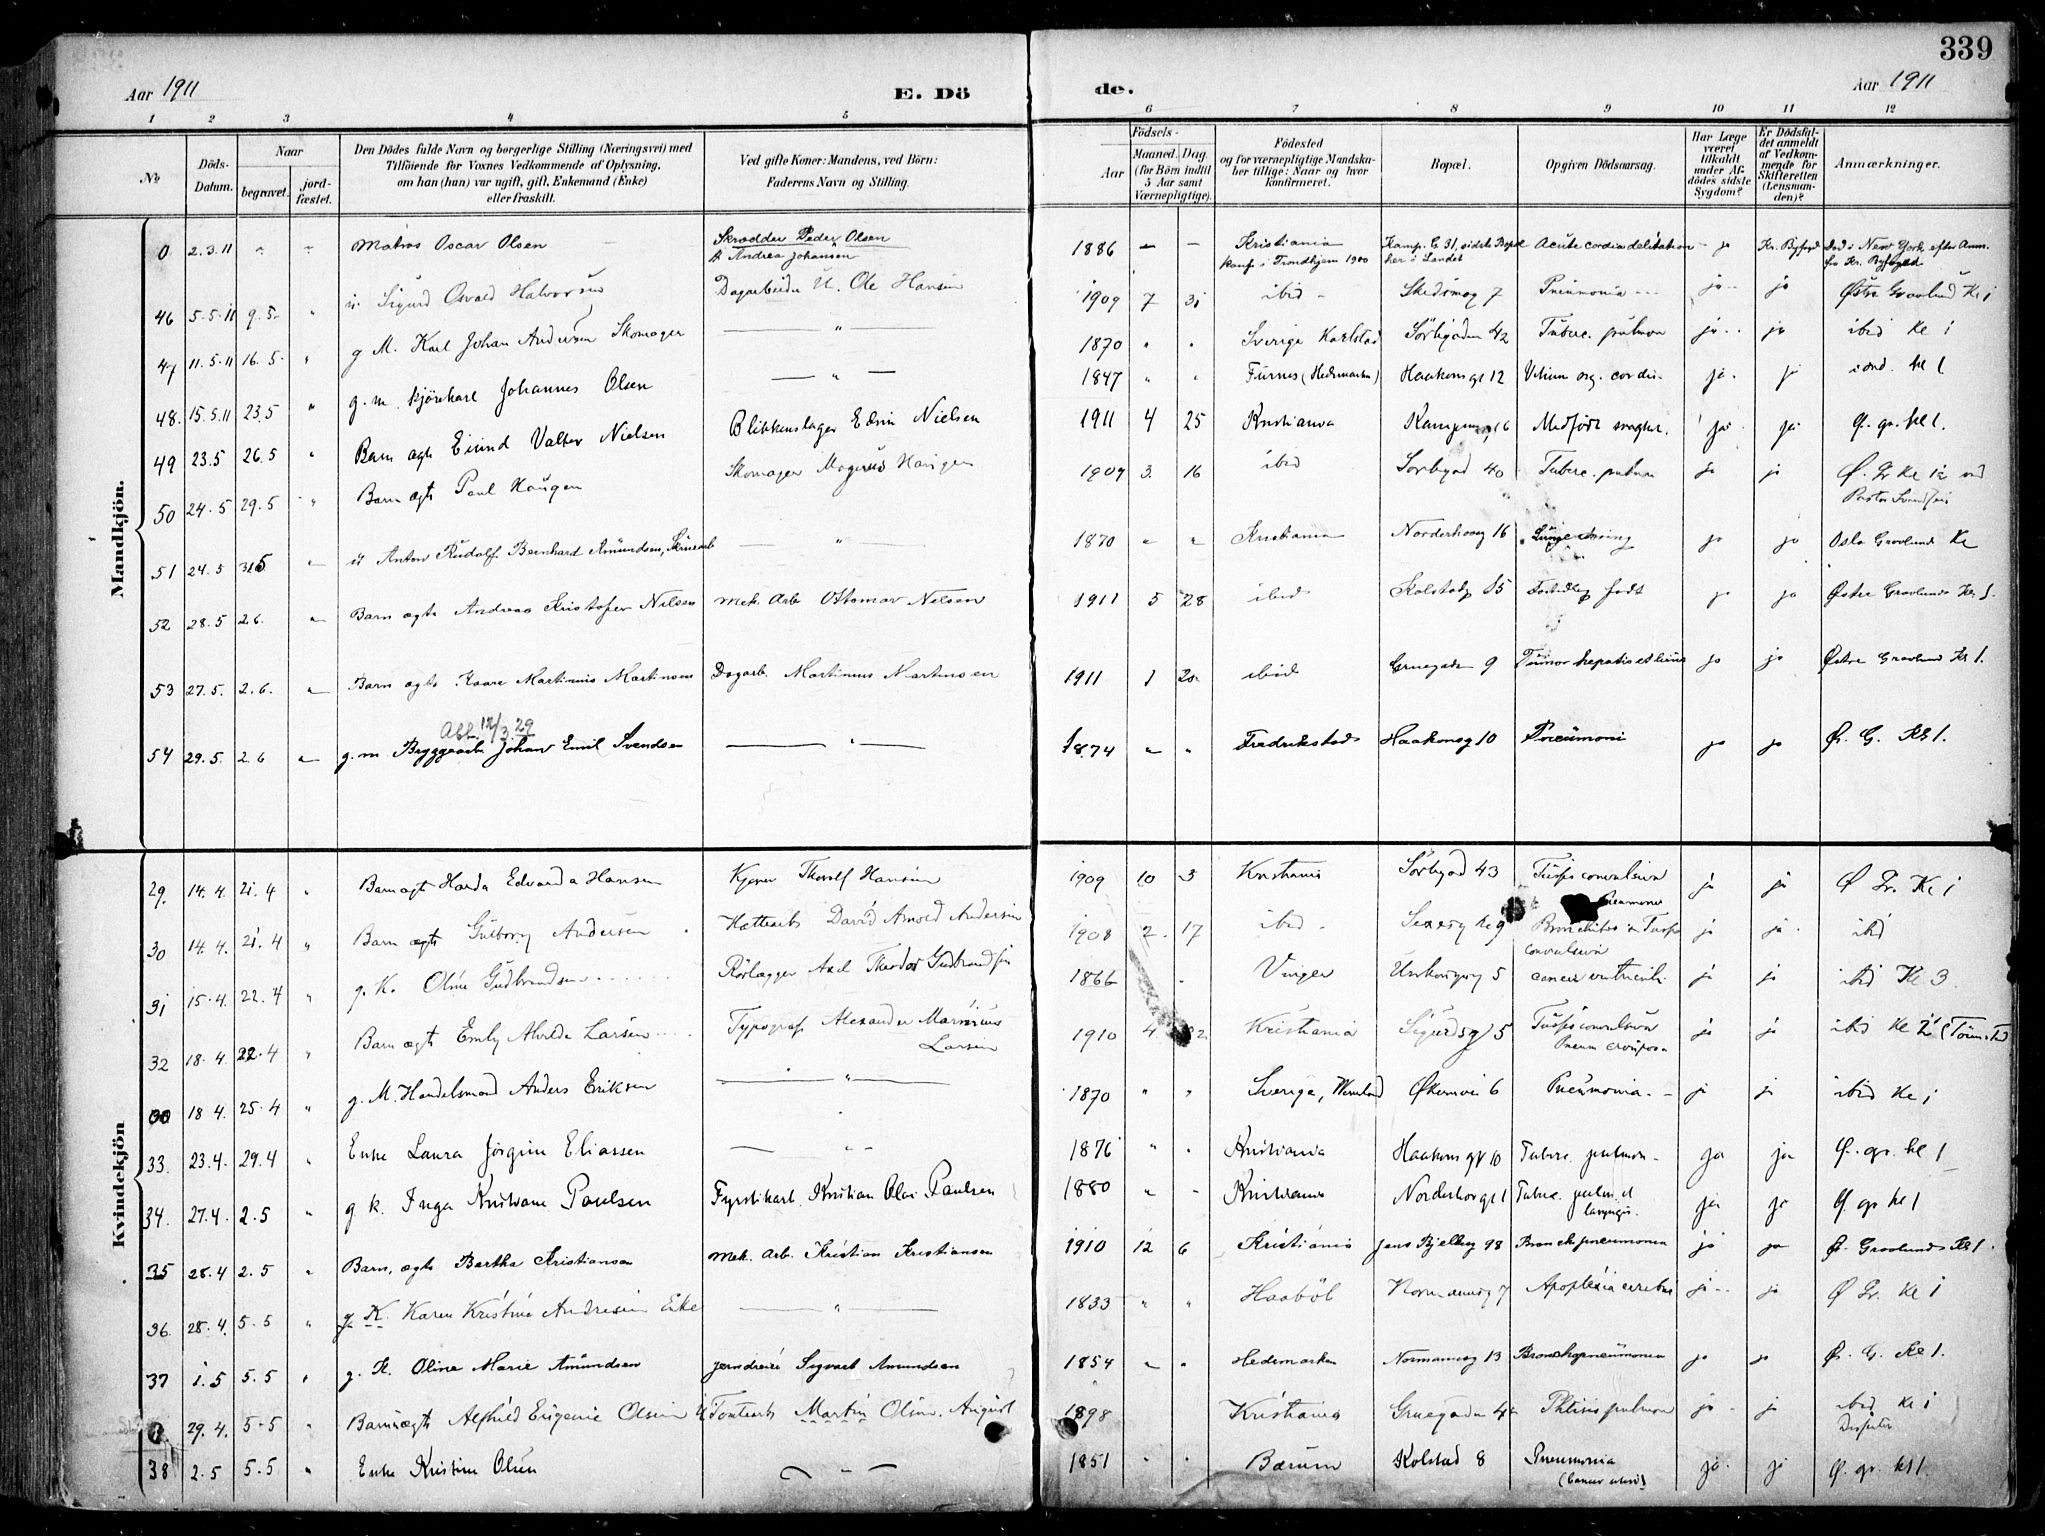 339
Aar 1911
E. Dö
de.
Aar 1911
1 2 3 4 5 6 7 8 9 10 11 12
№
Döds-Datum.
Naar
begravet.
jord-fæstet.
Den Dödes fulde Navn og borgerlige Stilling (Næringsvei) med
Tilföiende for Voxnes Vedkommende af Oplysning,
om han (hun) var ugift, gift, Enkemand (Enke)
eller fraskilt.
Ved gifte Koner: Mandens, ved Börn:
Faderens Navn og Stilling.
Födsels-
Aar
Maaned. Dag
(for Börn indtil
5 Aar samt
Værnepligtige).
Födested
og for værnepligtige Mandska-
ber tillige: Naar og hvor
konfirmeret.
Bopæl.
Opgiven Dödsaarsag.
Har Læge
været
tilkaldt
under Af-
dödes sidste
Sygdom?
Er Dödsfal-
det anmeldt
af Vedkom-
mende for
Skifteretten
(Lensman-
den)?
Anmærkninger.
Mandkjön.
0 2.3.11 " " Matros Oscar Olsen Skrædder Peder Olsen 1886 — — Kristiania Kamp. G. 31, sidste Bopæl Acute cordis ja Kr. Byfoged Død i New York, efter Anm.
& Andrea Johansen konf. i Trondhjem 1900 her i Landet fra Kr. Byfoged
46 5.5.11 9.5 " u. Sigurd Osvald Halvorsen Dagarbeider U. Ole Hansen 1909 7 31 ibid Skedsmog 7 Pneumonia ja ja Østre Gravlund Kl 1
47 11.5.11 16.5 " g M. Karl Johan Andersen Skomager — " — 1870 " " Sverige Karlstad Sörligaden 42 Tuberc. pulmon ja ja ibid Kl 1
48. 15.5.11 23.5 " g.m. kjörekarl Johannes Olsen — " — 1847 " " Furnes (Hedemarken) Haakons gt 12 Vitium org. cordis ja ja ibid. kl 1.
49 23.5 26.5 " Barn ægte Eivind Valter Nielsen Blikkenslager Edvin Nielsen 1911 4 25 Kristiania Kampens 16 Medfødt svaghet. ja ja Ø. gr. kl 1.
50 24.5 29.5 " Barn ægte Paul Haugen Skomager Magnus Haugen 1909 3. 16 ibid Sörligad 40 Tuberc. pulmon ja ja Ø. Gr Kl 1 ved
Pastor
51 24.5 31.5 " u Anton Rudolf Bernhard Amundsen, — " — 1870 " " Kristiania Norderhovg 16 ja ja Oslo Gravlund Kl
52 28.5 2.6. " Barn ægte Andreas Kristofer Nilsen Mek. Arb Ottomar Nilsen 1911 5 28 ibid Kolstadg 15 født ja ja Østre Gravlund Kl 1.
53 27.5. 2.6. " Barn ægte Kaare Martinius Martinsen Dagarb. Martinius Martinsen 1911 1 20 ibid Gruegaden 9 Tumor hepatis et ja ja Østre Gravlund Kl 1.
12/3.29
54 29.5. 2.6 " g.m. Bryggearb Johan Emil Svendsen — " — 1874 " " Fredrikstad Haakonsg 10 Pneumoni ja ja Ø. G. Kl 1.
Kvindekjön
29. 14.4. 21.4 " Barn ægte Edvarda Hansen Thorolf Hansen 1909 10 3 Kristiania Sörligad 43 Tussis convulsiva ja ja Ø Gr. Kl 1
Pneumoni
30 14.4. 21.4 " Barn ægte Gulborg Andersen Hattearb David Arnold Andersen 1908 2. 17 ibid Bronchitis Tussis ja ja ibid
convulsiva
31 15.4. 22.4 " g. K. Oline Gudbrandsen Rörlægger Axel Theodor Gudbrandsen 1866 . Vinger 5 cancer ventriculi ja ja ibid Kl 3
32 18.4. 22.4 " Barn ægte Emly Alvilda Larsen Typograf Alexander Marinius 1910 4 Kristiania Sigurdsg 5 Tussis convulsiva ja ja ibid Kl 2
Larsen Pneum crouposa
00 18.4. 25.4 " g. M. Handelsmand Anders Eriksen — " — 1870 " " Sverige, Wermland Økernvei 6 Pneumonia ja ja ibid Kl 1
33. 23.4. 29.4 " Enke Laura Jörgine Eliassen — " — 1876 " " Kristiania Haakons gt 10 Tuberc. pulmon. ja ja Ø. gr. kl 1
34. 27.4. 2.5 " g k. Inga Kristiane Paulsen Fyrstikarb. Kristian Olai Paulsen 1880 " " Kristiania Norderhov gt 1 Tuberc. pulm. et ja ja Ø. gr kl 1
laryngis.
35 28.4 2.5 " Barn, ægte Bertha Kristiansen Mek. Arb. Kristian Kristiansen 1910 12 6 Kristiania Jens Bjelkeg 98 Bronchpneumonia ja ja Ø. Gravlunds Kl 1.
36. 28.4. 5.5 " g. K. Karen Kristine Andresen Enke — " — 1833 " " Haaböl Normannsg 7 Apoplexia cerebri ja ja Ø Gr. Kl 1
37 1.5 5.5 " g. K. Oline Marie Amundsen Jerndreier Sigvart Amundsen 1854 " " Hedemarken Normannsg 13 Bronchopneumonia ja ja Ø. G. Kl 1.
0 29.4. 5-5 " Barn ægte Alfhild Eugenie Olsen Martin Olsen, August 1898 Kristiania Gruegaden 4 Phtisis pulmon ja ja ibid Kl 1
38 2.5 5.5 " Enke Kristine Olsen — " — 1851 " " Bærum Kolstad 8 Pneumonia ja ja Ø. gr. kl 1.
(Cancer uteri)